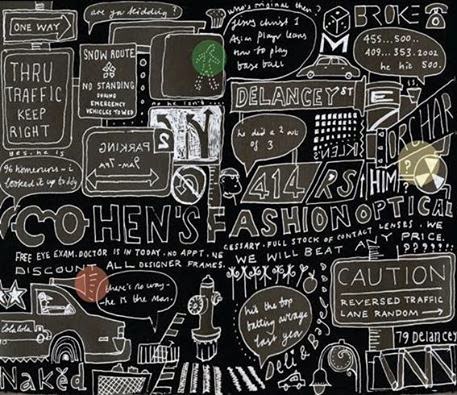 ONE WAY
are you kidding?
who's original then?
Jesus christ!
Asian player learns
how to play
base ball
BROKE
455...500..
409...353.2002
he hit 500.
SNOW ROUTE
NO STANDING
DURING
EMERGENCY
VEHICLES TOWED
M
THRU
TRAFFIC
KEEP
RIGHT
DELANCEY ST
yes, he is
96 homeruns - i
looked it up today
PARKING
9am-7PM
he did a 2 out
of 3
KLENS
ORCHAR
?
414
RS
HIM
COHEN'S FASHION OPTICAL
FREE EYE EXAM. DOCTOR IS IN TODAY. NO APPT. NE
CESSARY. FULL STOCK OF CONTACT LENSES. WE
DISCOUNT ALL DESIGNER FRAMES.
WE WILL BEAT ANY PRICE.
there's no way -
he is the man.
Coca Cola
Naked
hit the top
batting average
last year
Deli & Bagel
CAUTION
REVERSED TRAFFIC
LANE RANDOM
79 Delancey